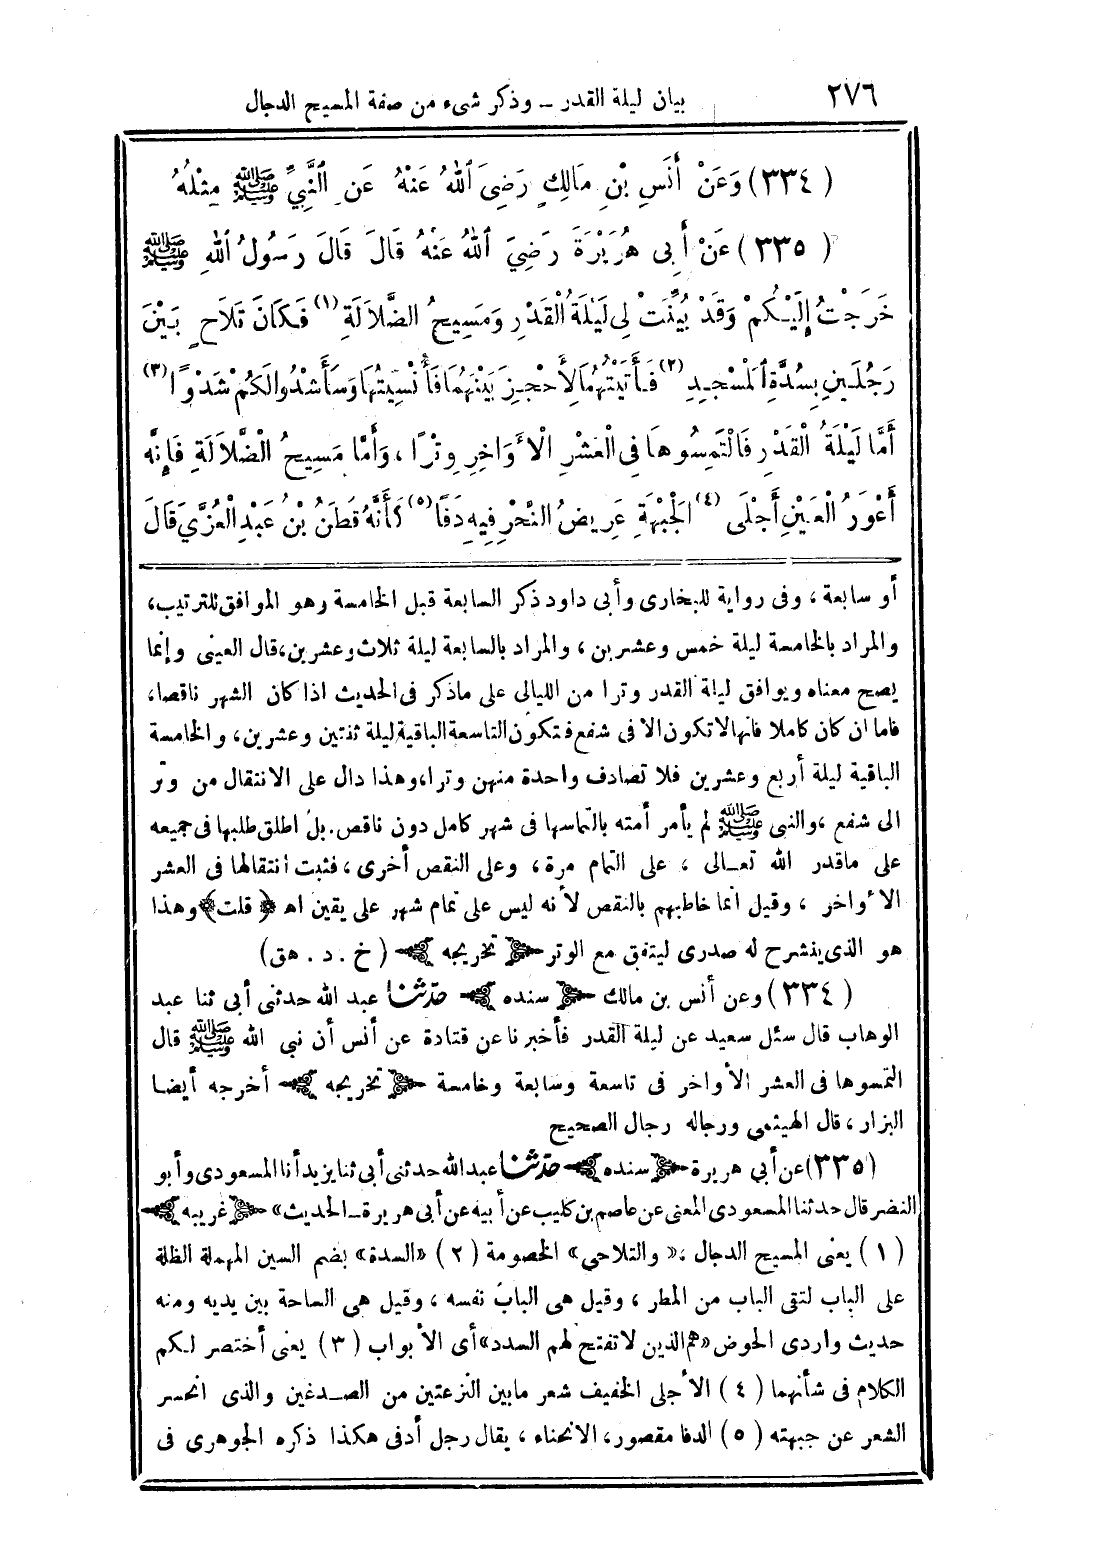 ٢٧٦ بيان ليلة القدر – وذكر شىء من صفة المسيح الدجال
(٣٣٤) وَعَنْ أَنَسِ بْنِ مَالِكٍ رَضِىَ ٱللهُ عَنْهُ عَنِ النَّبِيِّ ﷺ مِثْلَهُ
(٣٣٥) عَنْ أَبِى هُرَيْرَةَ رَضِيَ ٱللهُ عَنْهُ قَالَ قَالَ رَسُولُ ٱللهِ ﷺ
خَرَجْتُ إِلَيْكُمْ وَقَدْ بُيِّنَتْ لِى لَيْلَةُ الْقَدْرِ وَمَسِيحُ الضَّلَالَةِ (١) فَكَانَ تَلَاحٍ بَيْنَ
رَجُلَيْنِ بِسُدَّةِ ٱلْمَسْجِدِ (٢) فَأَتَيْتُهُمَا لِأَحْجِزَ بَيْنَهُمَا فَأُنْسِيتُهَا وَسَأَشْدُوا لَكُمْ شَدْوًا (٣)
أَمَّا لَيْلَةُ الْقَدْرِ فَالْتَمِسُوهَا فِى الْعَشْرِ الْأَوَاخِرِ وِتْرًا، وَأَمَّا مَسِيحُ الضَّلَالَةِ فَإِنَّهُ
أَعْوَرُ الْعَيْنِ أَجْلَى (٤) الْجَبْهَةِ عَرِيضُ النَّحْرِ فِيهِ دَفًا (٥) كَأَنَّهُ قَطَنُ بْنُ عَبْدِ الْعُزَّيَ قَالَ
أو سابعة، وفى رواية للبخارى وأبى داود ذكر السابعة قبل الخامسة وهو الموافق للترتيب،
والمراد بالخامسة ليلة خمس وعشرين، والمراد بالسابعة ليلة ثلاث وعشرين، قال العينى وإنما
يصح معناه ويوافق ليلة القدر وترا من الليالى على ماذكر فى الحديث اذا كان الشهر ناقصا،
فاما ان كان كاملا فانها لا تكون الا فى شفع فتكون التاسعة الباقية ليلة ثنتين وعشرين، والخامسة
الباقية ليلة أربع وعشرين فلا تصادف واحدة منهن وترا، وهذا دال على الانتقال من وتر
الى شفع، والنبى ﷺ لم يأمر أمته بالتماسها فى شهر كامل دون ناقص. بل اطلق طلبها فى جميعه
على ماقدر الله تعالى، على التمام مرة، وعلى النقص أخرى، فثبت انتقالها فى العشر
الأواخر، وقيل انما خاطبهم بالنقص لأنه ليس على تمام شهر على يقين اه ﴿قلت﴾ وهذا
هو الذى ينشرح له صدرى ليتفق مع الوتر ﴿تخريجه﴾ (خ . د . هق)
(٣٣٤) وعن أنس بن مالك ﴿سنده﴾ حدثنا عبد الله حدثنى أبى ثنا عبد
الوهاب قال سئل سعيد عن ليلة القدر فأخبرنا عن قتادة عن أنس أن نبى الله ﷺ قال
التمسوها فى العشر الأواخر فى تاسعة وسابعة وخامسة ﴿تخريجه﴾ أخرجه أيضا
البزار، قال الهيثمى ورجاله رجال الصحيح
(٣٣٥) عن أبي هريرة ﴿سنده﴾ حدثنا عبد الله حدثنى أبى ثنا يزيد أنا المسعودى وأبو
النضر قال حدثنا المسعودى المعنى عن عاصم بن كليب عن أبيه عن أبى هريرة – الحديث» ﴿غريبه﴾
(١) يعنى المسيح الدجال، «والتلاحي» الخصومة (٢) «السدة» بضم السين المهملة الظلة
على الباب لتقى الباب من المطر، وقيل هى الباب نفسه، وقيل هى الساحة بين يديه ومنه
حديث واردى الحوض «هم الذين لا تفتح لهم السدد» أى الأبواب (٣) يعنى أختصر لكم
الكلام فى شأنهما (٤) الأجلى الخفيف شعر مابين النزعتين من الصدغين والذى انحسر
الشعر عن جبهته (٥) الدفا مقصور، الانحناء، يقال رجل أدفى هكذا ذكره الجوهرى فى